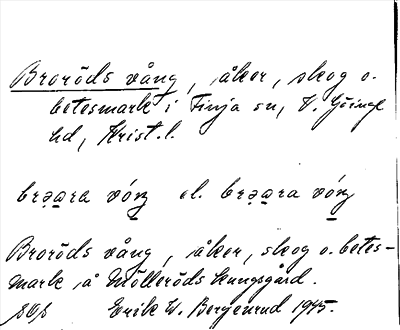 Broröds vång, åker, skog o.
betesmark i Finja sn, V. Göinge
hd, Krist. l.
brәa̱ra vóŋ el. brәa̱ra vóŋ
Broröds vång, åker, skog o. betes-
mark å Mölleröds kungsgård.
Erik W. Bergenrud 1945.